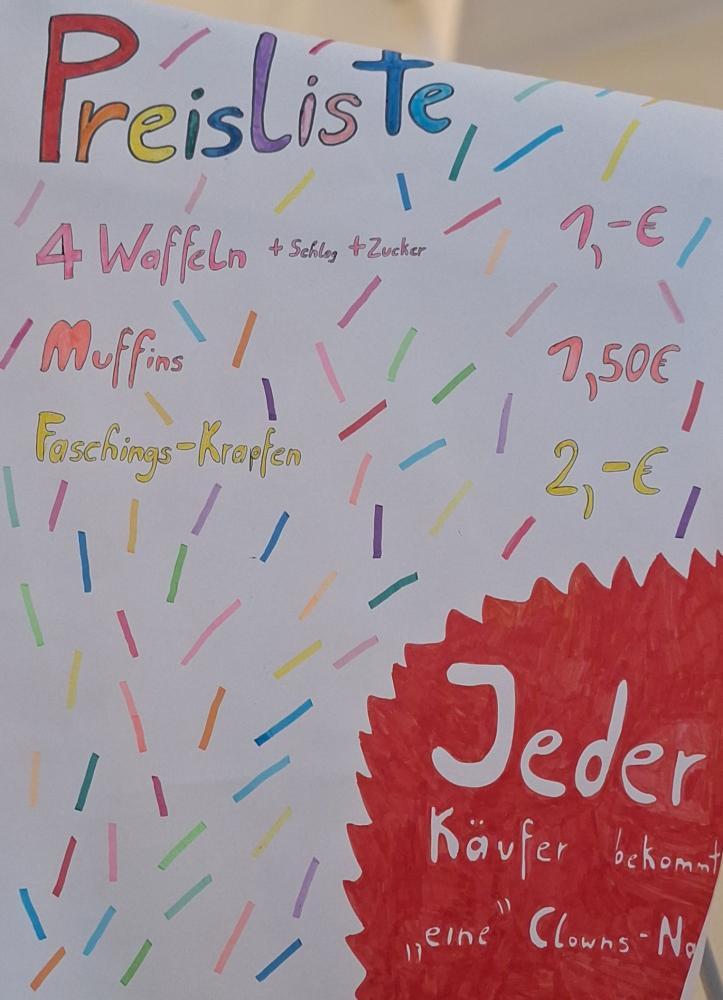 Preisliste
4 Waffeln + Schlag + Zucker 1,-€
Muffins 1,50€
Faschings-Krapfen 2,-€
Jeder
Käufer bekommt
„eine" Clowns-Na